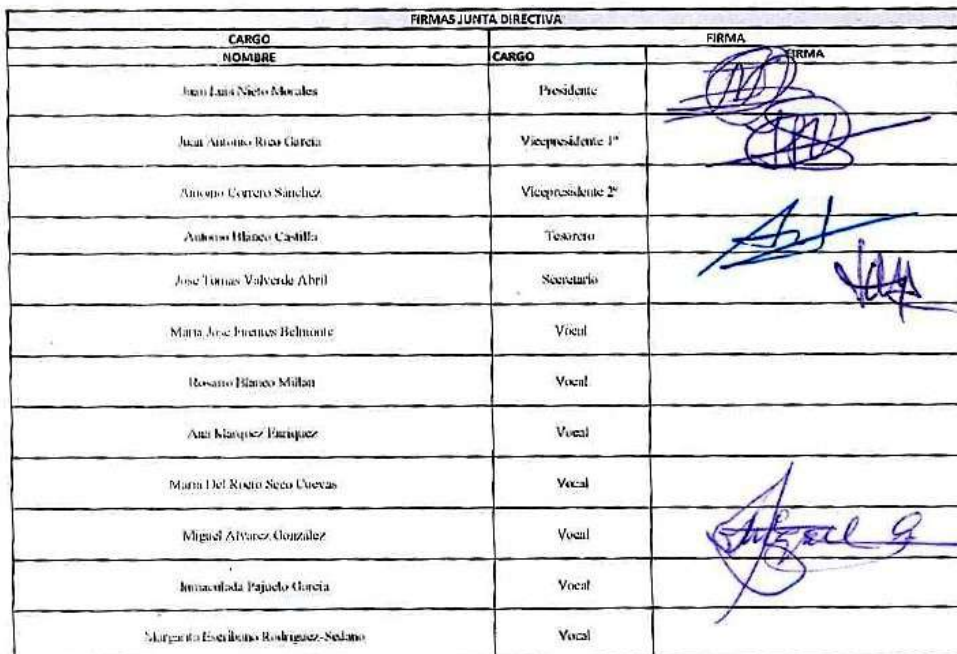 FIRMAS JUNTA DIRECTIVA
CARGO FIRMA
NOMBRE CARGO FIRMA
Juan Luis Nieto Morales Presidente
Juan Antonio Rico García Vicepresidente 1º
Antonio Correro Sánchez Vicepresidente 2º
Antonio Blanco Castilla Tesorero
Jose Tomas Valverde Abril Secretario
Maria Jose Fuentes Belmonte Vocal
Rosario Blanco Millan Vocal
Ana Marquez Enriquez Vocal
Maria Del Rocio Seco Cuevas Vocal
Miguel Alvarez González Vocal
Inmaculada Pajuelo Garcia Vocal
Margarita Escribano Rodriguez-Sedano Vocal